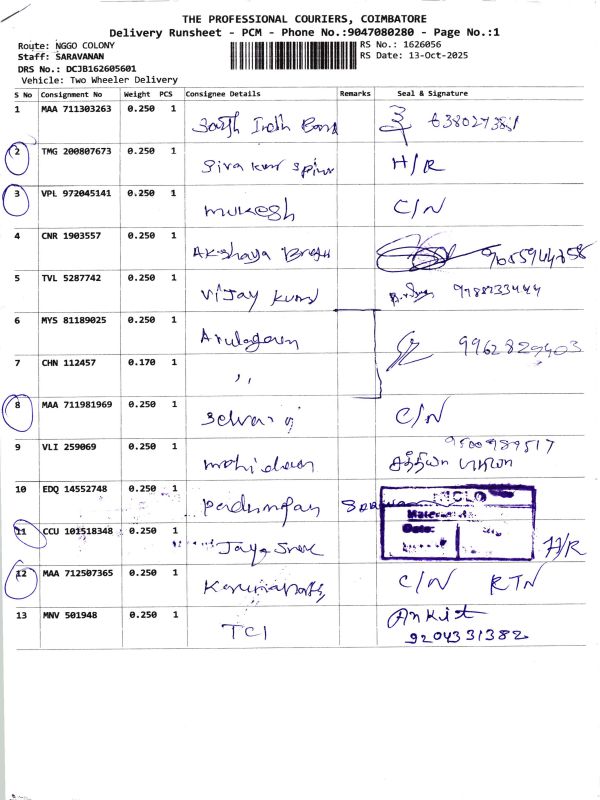 THE PROFESSIONAL COURIERS, COIMBATORE
Delivery Runsheet - PCM - Phone No.:9047080280 - Page No.:1
Route: NGGO COLONY RS No.: 1626056
Staff: SARAVANAN RS Date: 13-Oct-2025
DRS No.: DCJB162605601
Vehicle: Two Wheeler Delivery
S No Consignment No Weight PCS Consignee Details Remarks Seal & Signature
1 MAA 711303263 0.250 1 South Indh Bank
2 TMG 200807673 0.250 1 Siva kum Spinn H/R
3 VPL 972045141 0.250 1 mukesh C/N
4 CNR 1903557 0.250 1 Akshaya
5 TVL 5287742 0.250 1 Vijay kumr 9788733444
6 MYS 81189025 0.250 1
7 CHN 112457 0.170 1 ,, 9962829403
8 MAA 711981969 0.250 1 C/N
9 VLI 259069 0.250 1 9500989517
10 EDQ 14552748 0.250 1
11 CCU 101518348 0.250 1 Jaya
Date:
12 MAA 712507365 0.250 1 C/N RTN
13 MNV 501948 0.250 1 TCI Ankist
9204331382